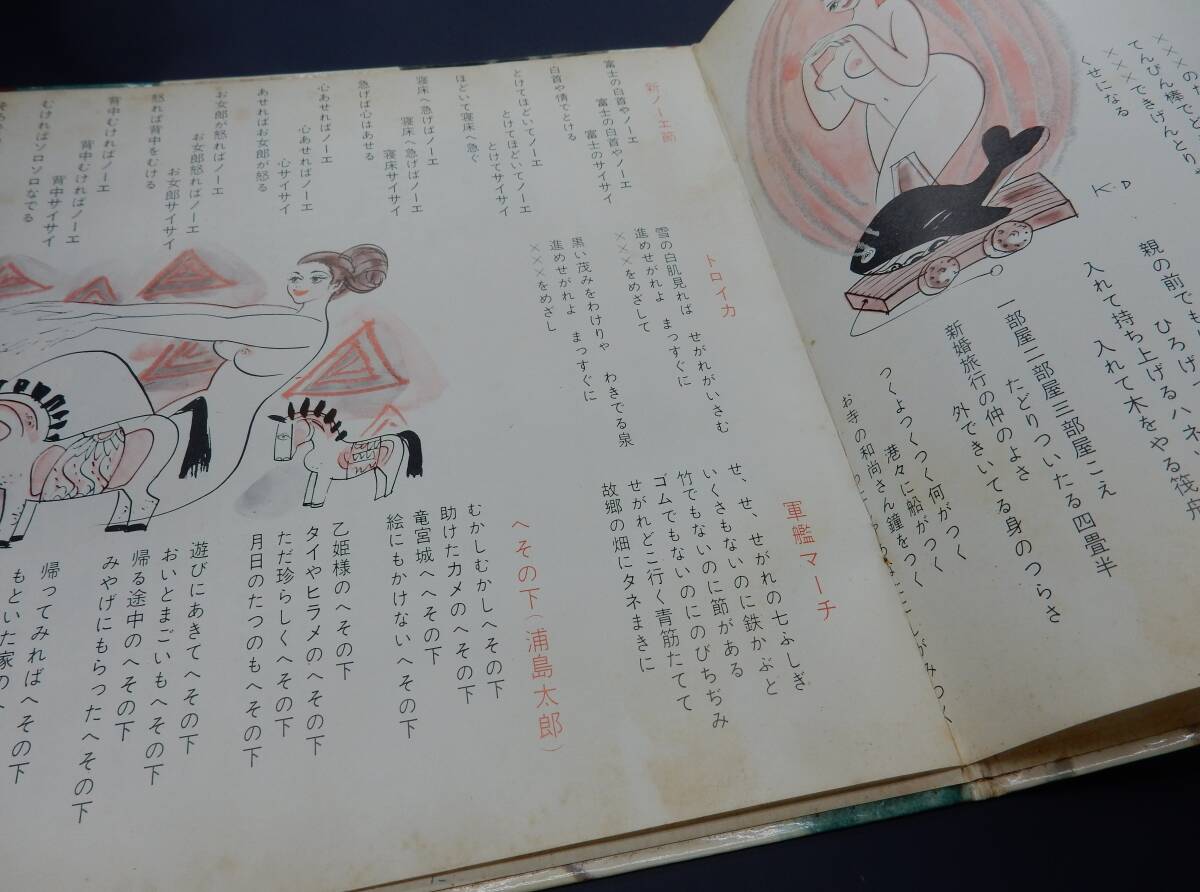 ×××のた
てんびん棒でど
×××できげんとりゃ
くせになる
K・D
親の前でも
ひろげ
入れて持ち上げるハネ
入れて木をやる筏舟
一部屋二部屋三部屋こえ
たどりついたる四畳半
新婚旅行の仲のよさ
外できいてる身のつらさ
つくよつくつく何がつく
港々に船がつく
お寺の和尚さん鐘をつく
しがみつく
軍艦マーチ
せ、せ、せがれの七ふしぎ
いくさもないのに鉄かぶと
竹でもないのに節がある
ゴムでもないのにのびちぢみ
せがれどこ行く青筋たてて
故郷の畑にタネまきに
新ノーエ節
富士の白首やノーエ
富士の白首やノーエ
富士のサイサイ
白首や情でとける
とけてほどいてノーエ
とけてほどいてノーエ
とけてサイサイ
ほどいて寝床へ急ぐ
寝床へ急げばノーエ
寝床へ急げばノーエ
寝床サイサイ
急げば心はあせる
心あせればノーエ
心あせればノーエ
心サイサイ
あせればお女郎が怒る
お女郎が怒ればノーエ
お女郎怒ればノーエ
お女郎サイサイ
怒れば背中をむける
背中むければノーエ
背中むければノーエ
背中サイサイ
むければソロソロなでる
トロイカ
雪の白肌見れば せがれがいさむ
進めせがれよ まっすぐに
×××をめざして
黒い茂みをわけりゃ わきてる泉
進めせがれよ まっすぐに
×××をめざし
へその下(浦島太郎)
むかしむかしへその下
助けたカメのへその下
竜宮城へへその下
絵にもかけないへその下
乙姫様のへその下
タイやヒラメのへその下
ただ珍らしくへその下
月日のたつのもへその下
遊びにあきてへその下
おいとまごいもへその下
帰る途中のへその下
みやげにもらったへその下
帰ってみればへその下
もといた家の